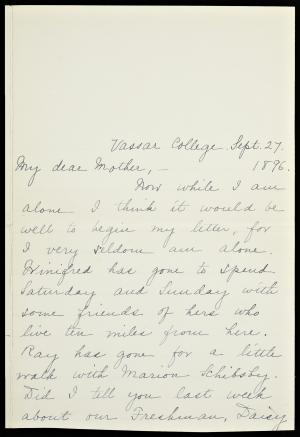 Vassar College. Sept. 27.
My dear Mother, — 1896.
Now while I am
alone I think it would be
well to begin my letter, for
I very seldom am alone.
Winifred has gone to spend
Saturday and Sunday with
some friends of hers who
live ten miles from here.
Ray has gone for a little
walk with Marion Schibsby.
Did I tell you last week
about our Freshman, Daisy